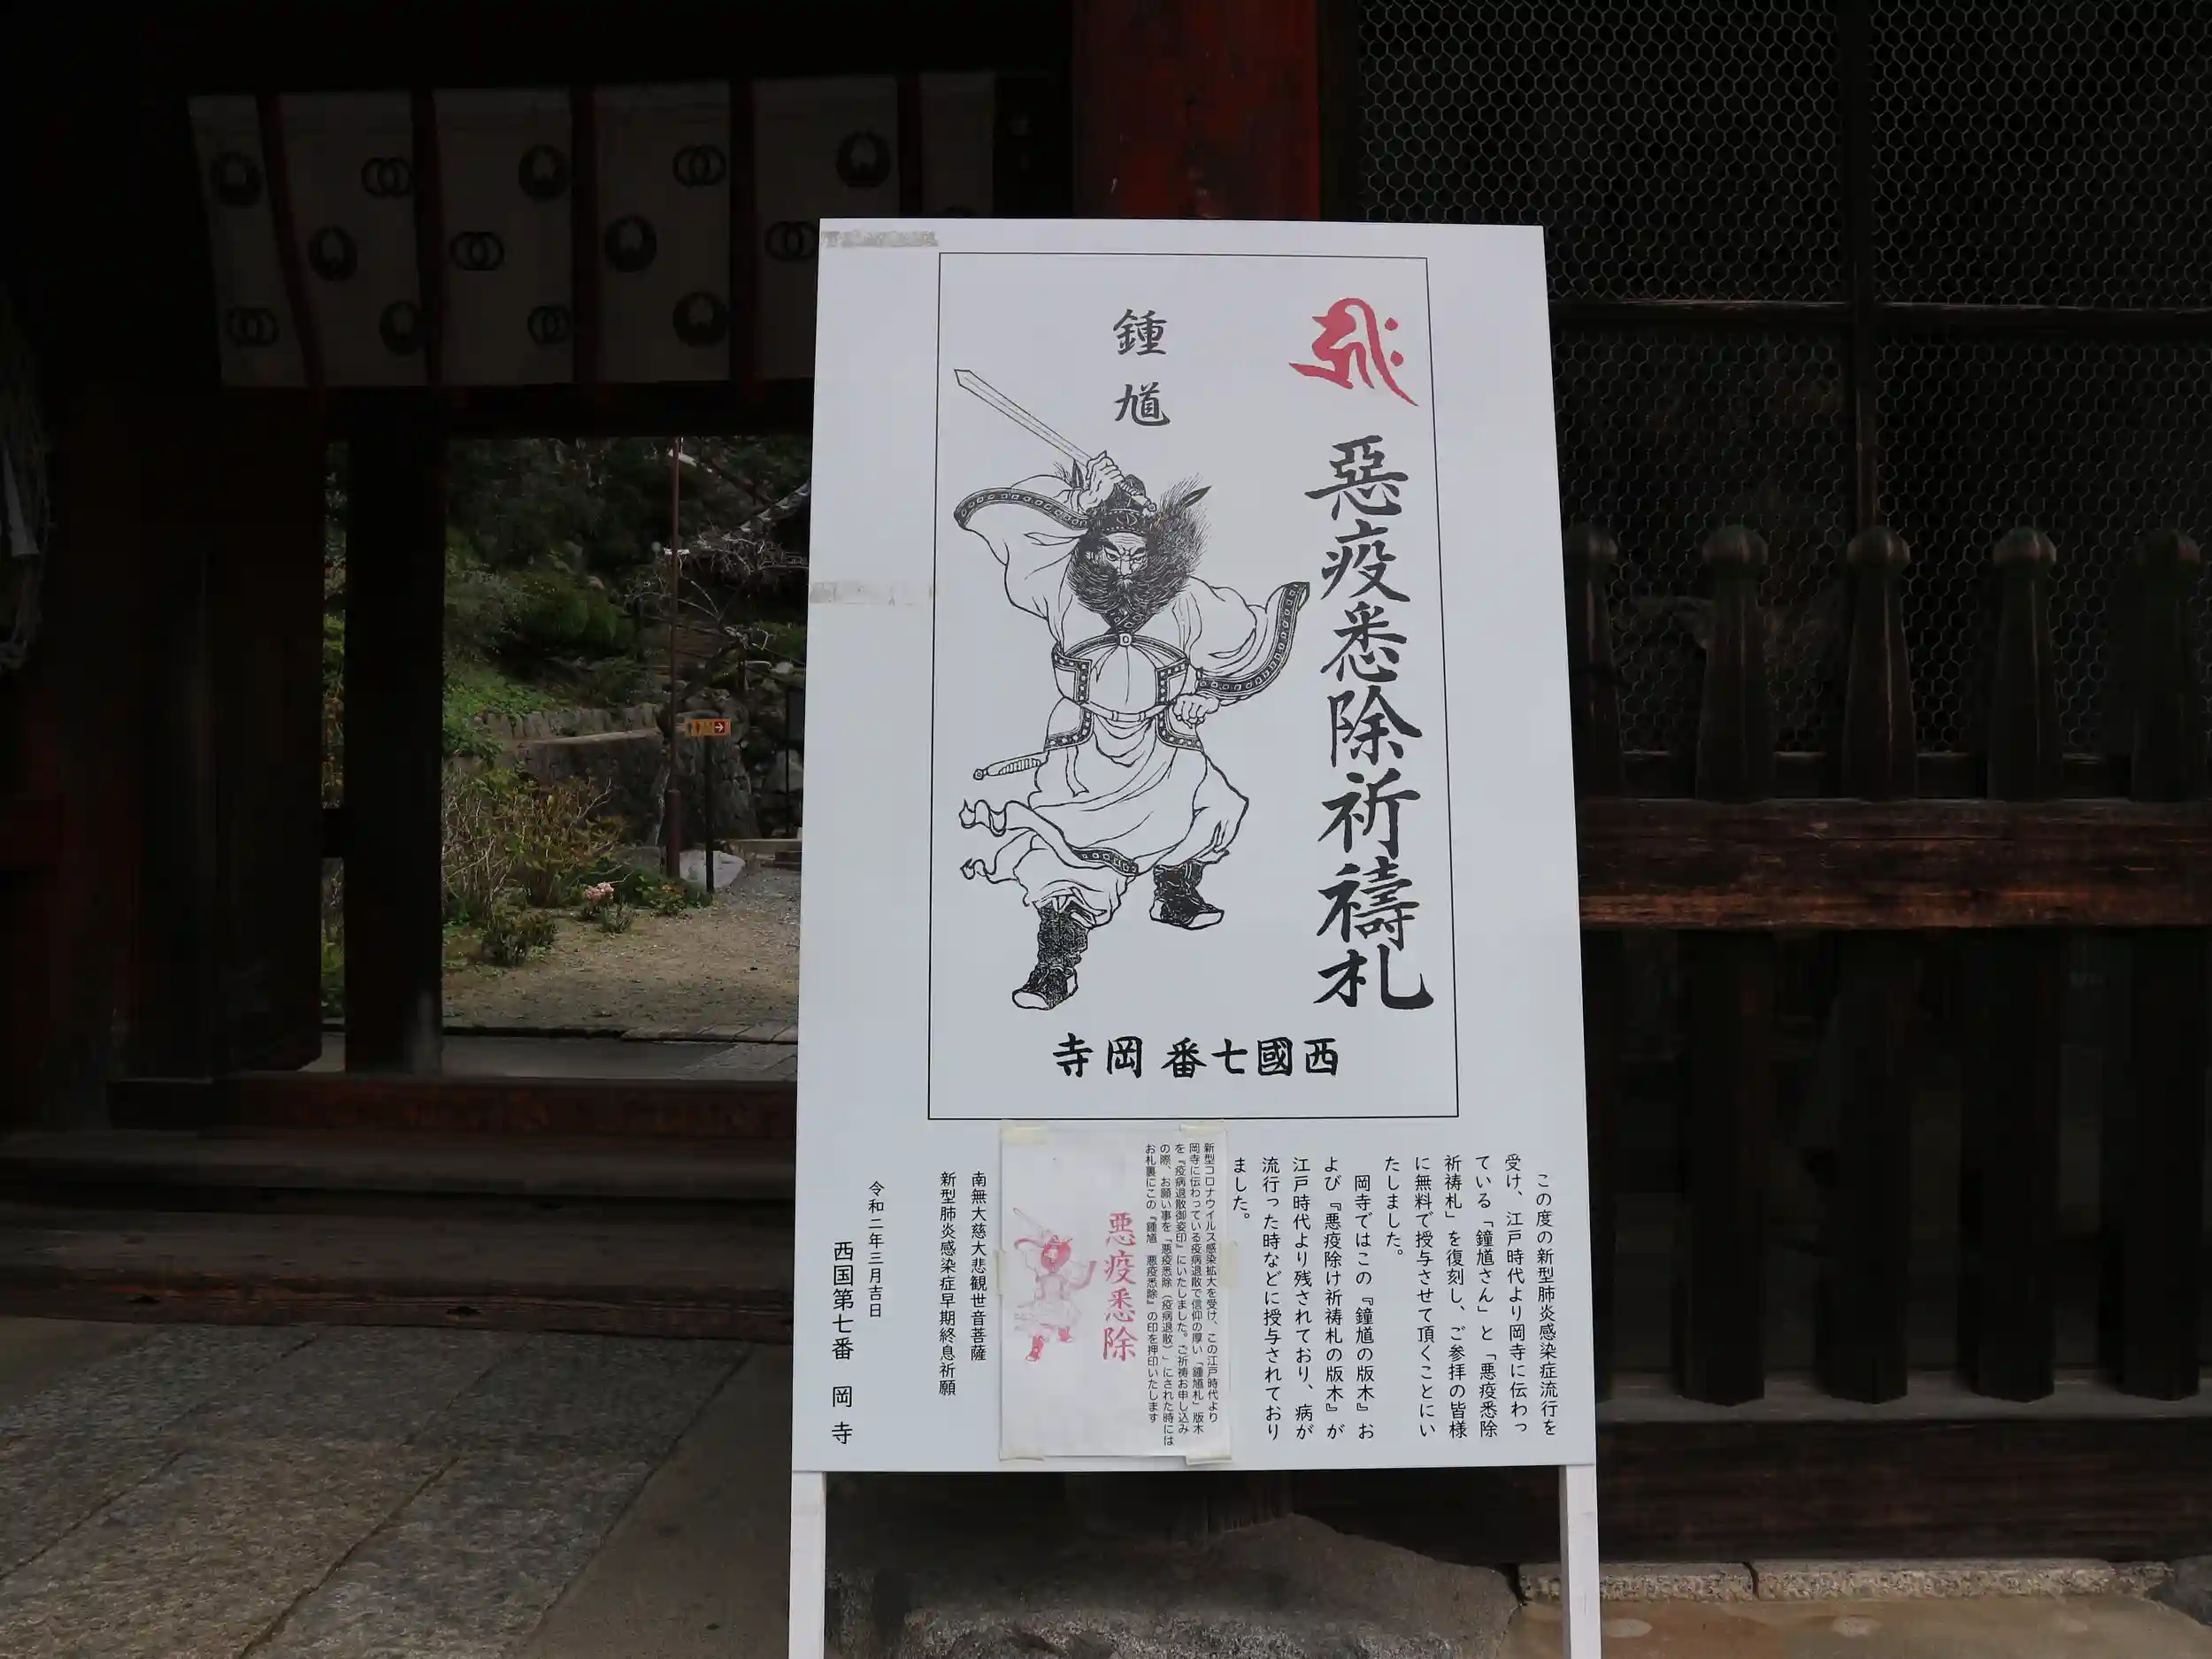 惡疫悉除祈禱札
鍾
馗
西國七番岡寺
この度の新型肺炎感染症流行を
受け、江戸時代より岡寺に伝わっ
ている「鐘馗さん」と「悪疫悉除
祈祷札」を復刻し、ご参拝の皆様
に無料で授与させて頂くことにい
たしました。
岡寺ではこの『鐘馗の版木』お
よび『悪疫除け祈祷札の版木』が
江戸時代より残されており、病が
流行った時などに授与されており
ました。
新型コロナウイルス感染拡大を受け、この江戸時代より
岡寺に伝わっている疫病退散で信仰の厚い「鍾馗札」版木
を『疫病退散御姿印』にいたしました。ご祈祷お申し込み
の際、お願い事を「悪疫悉除（疫病退散）」にされた時には
お札裏にこの『鍾馗 悪疫悉除』の印を押印いたします
惡疫悉除
南無大慈大悲観世音菩薩
新型肺炎感染症早期終息祈願
令和二年三月吉日
西国第七番 岡寺